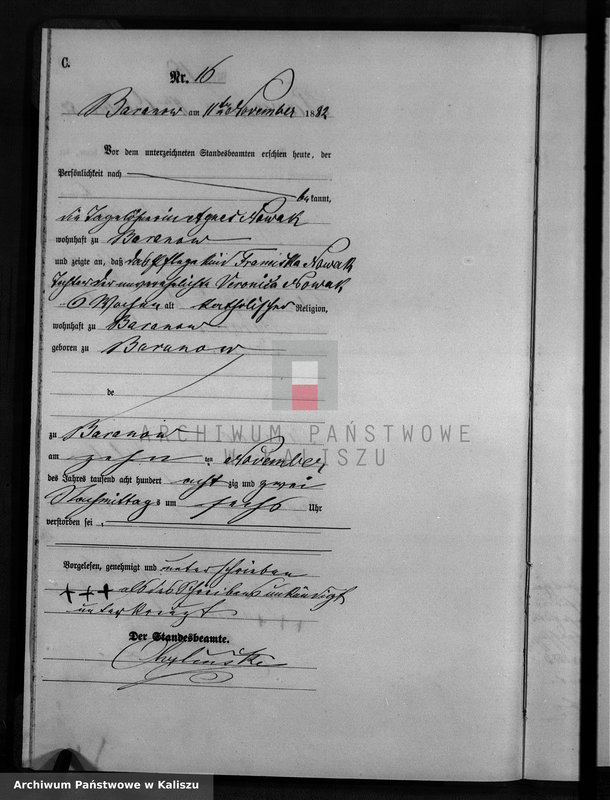 C.
Nr. 16
Baranow am 11ten November 1882
Vor dem unterzeichneten Standesbeamten erschien heute, der
Persönlichkeit nach
bekannt,
die Agnes Nowak
wohnhaft zu Baranow
und zeigte an, daß das Pflegekind Franciska Nowak
Tochter der unverehelichte Veronica Nowak
6 Wochen alt katholischer Religion,
wohnhaft zu Baranow
geboren zu Baranow
de
zu Baranow
am zehn ten November
des Jahres tausend acht hundert achtzig und zwei
Nachmittags um sechs Uhr
verstorben sei.
Vorgelesen, genehmigt und unterschrieben
+++ als des Schreibens unkündigt
unterkreuzt
Der Standesbeamte.
ARCHIWUM PAŃSTWOWE
W KALISZU
Archiwum Państwowe w Kaliszu